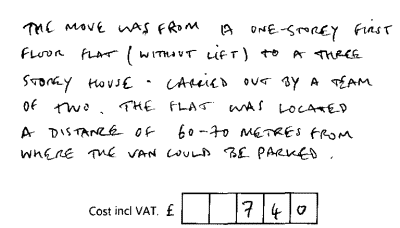 THE MOVE WAS FROM A ONE-STOREY FIRST
FLOOR FLAT (WITHOUT LIFT) TO A THREE
STOREY HOUSE - CARRIED OUT BY A TEAM
OF TWO. THE FLAT WAS LOCATED
A DISTANCE OF 60-70 METRES FROM
WHERE THE VAN COULD BE PARKED.
Cost incl VAT. £ 740